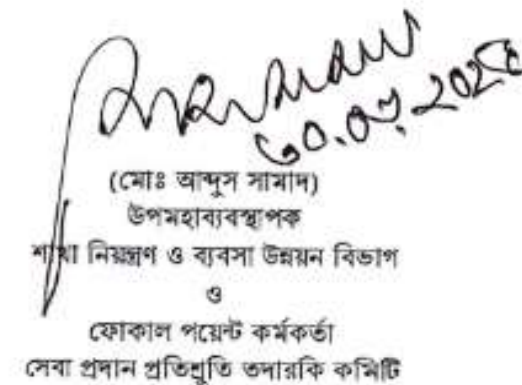 (মোঃ আব্দুস সামাদ)
উপমহাব্যবস্থাপক
শাখা নিয়ন্ত্রণ ও ব্যবসা উন্নয়ন বিভাগ
ও
ফোকাল পয়েন্ট কর্মকর্তা
সেবা প্রদান প্রতিশ্রুতি তদারকি কমিটি